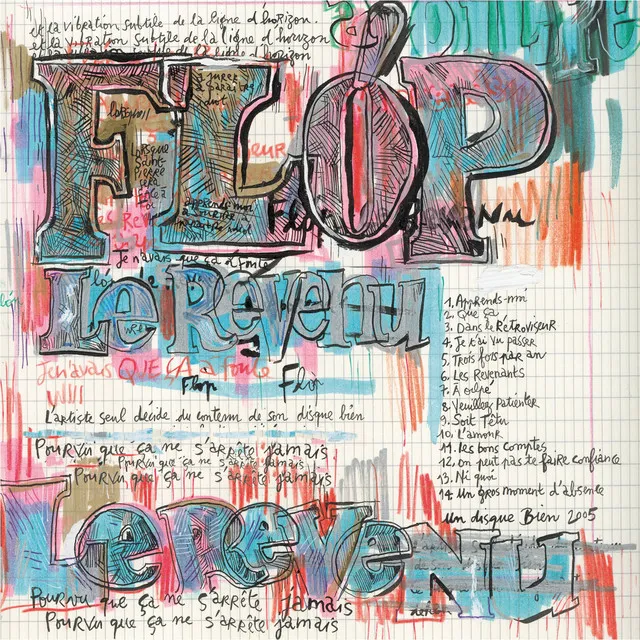 et la vibration subtile de la ligne d'horizon.
et la vibration subtile de la ligne d'horizon
et la vibration subtile de la ligne d'horizon
FLÓP
Lorsque
Saint-
Pierre
apprends-moi
Flop
Je n'avais que ça à foutre
Le Revenu
Je n'avais QUE ÇA à foutre
Flop Flop
L'artiste seul décide du contenu de son disque bien
Pourvu que ça ne s'arrête jamais
Pourvu que ça ne s'arrête jamais
Pourvu que ça ne s'arrête jamais
1. Apprends-moi
2. Que ça
3. Dans le Rétroviseur
4. Je t'ai vu passer
5. Trois fois par an
6. Les Revenants
7. À oilpé
8. Veuillez patienter
9. Soit Têtu
10. L'amour
11. Les bons comptes
12. On peut pas te faire confiance
13. Ni quoi
14. Un gros moment d'absence
Un disque Bien 2005
Le Revenu
Pourvu que ça ne s'arrête jamais
Pourvu que ça ne s'arrête jamais